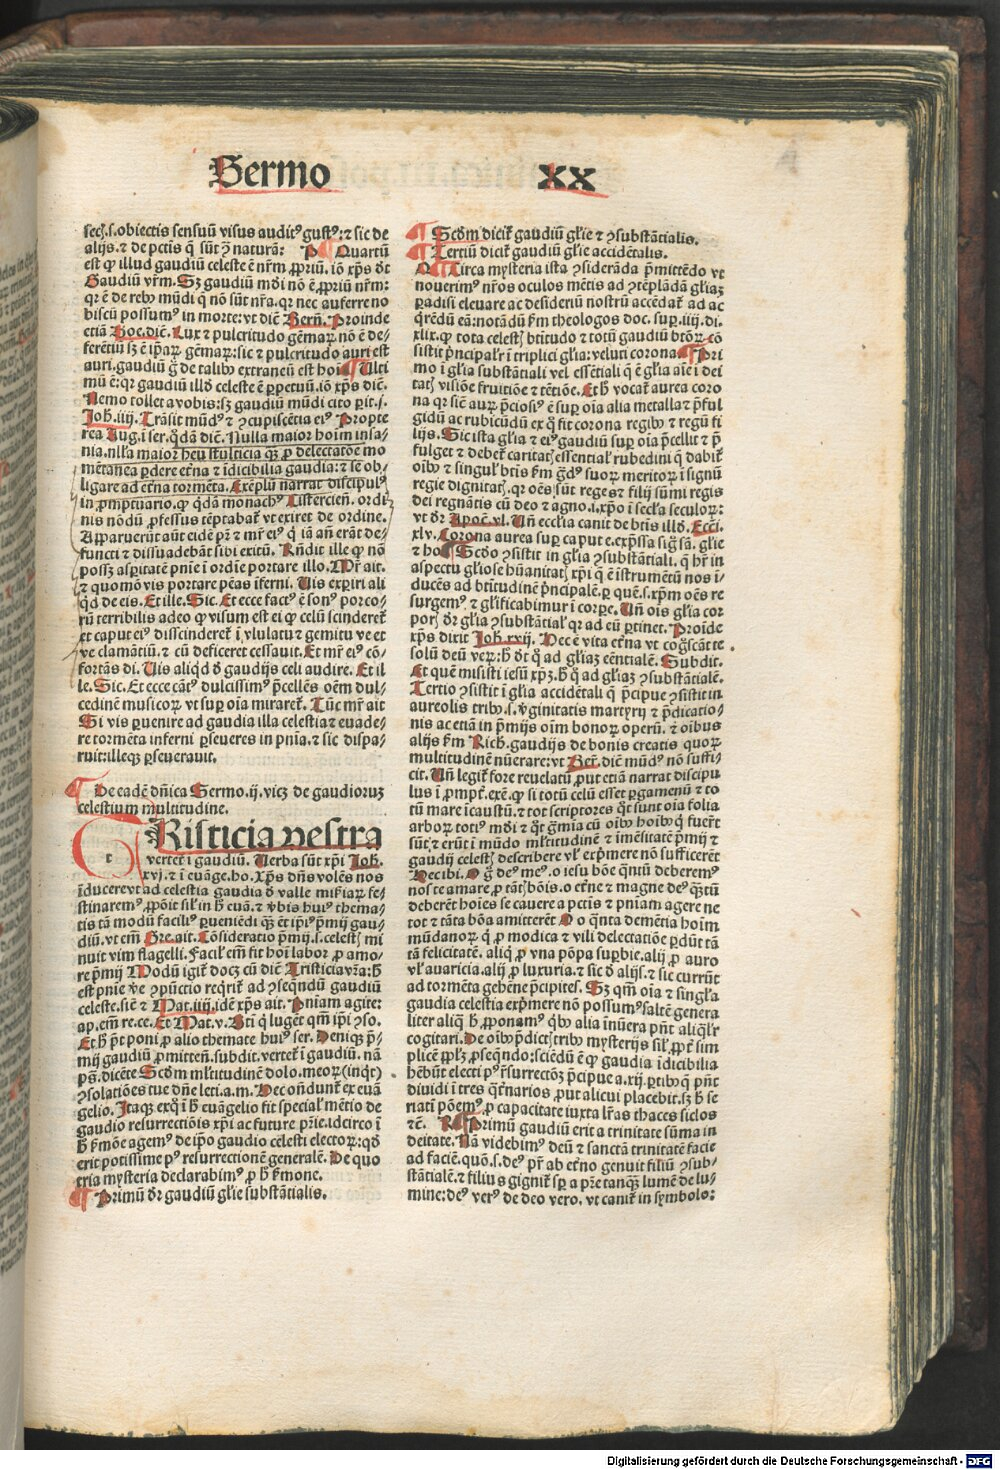 Sermo XX
secꝫ.s.obiectis sensuū visus auditꝰ gustꝰ:⁊ sic de
alijs.⁊ de pctis q̄ sūt ꝯ naturā: Quartū
est ꝙ illud gaudiū celeste ē nr̄m ꝓpriū.iō xp̄s dt
Gaudiū vr̄m. Sꝫ gaudiū mdi nō ē ꝓpriū nr̄m:
qr ē de rebꝰ mūdi q̄ nō sūt nr̄a. qr nec auferre no
biscū possumꝰ in morte: vt dic̄ Bern̄. Proinde
etiā Boe.dic̄. Lux ⁊ pulcritudo gēmaꝝ nō ē de⸗
ferētiū sꝫ ē ip̄aꝝ gēmaꝝ: sic ⁊ pulcritudo auri est
auri. gaudiū g̊ de talibꝰ extraneū est hoī Ulti
mū ē: qr gaudiū illd̓ celeste ē ꝑpetuū. iō xp̄s dic̄.
Nemo tollet a vobis: sꝫ gaudiū mūdi cito ꝑit.j.
Joh.iiij. Trāsit mūdꝰ ⁊ ꝯcupiscētia eiꝰ Propte
rea Aug.i ser.q̄dā dic̄. Nulla maior hoim insa⸗
nia. nll̓a maior heu stulticia qꝫ ꝓ delectatōe mo
mētanea ꝑdere et̓na ⁊ īdicibilia gaudia: ⁊ se ob⸗
ligare ad et̓na tormēta. Exēplū narrat discipulꝰ
in ꝓmptuario. ꝙ qdā monachꝰ Cistercien̄. ordi
nis nōdū ꝓfessus tēptabat̓ vt exiret de ordine.
Apparuerūt aūt eidē pr̄ ⁊ mr̄ eiꝰ q̄ iā an̄ erāt de⸗
functi ⁊ dissuadebāt sibi exitū. Rn̄dit ille ꝙ nō
possꝫ asꝑitatē pnīe ī ordīe portare illo. Mr̄ ait.
⁊ quomō vis portare pēas iferni. Uis exꝑiri ali
qd de eis. Et ille. Sic. Et ecce factꝰ ē sonꝰ porco⸗
rū terribilis adeo ꝙ visum est ei ꝙ celū scinderet̓
et caput eiꝰ disscinderet̓ ī vlulatu ⁊ gemitu ve et
ve clamātiū. ⁊ cū deficeret cessauit. Et mr̄ eiꝰ cō⸗
fortās di. Uis aliqd d̓ gaudijs celi audire. Et il
le. Sic. Et ecce cātꝰ dulcissimꝰ p̄cellēs oēm dul⸗
cedinē musicoꝝ vt suꝑ oīa miraret̓. Tūc mr̄ ait
Si vis ꝑuenire ad gaudia illa celestia ⁊ euade⸗
re tormēta inferni ꝑseueres in pnīa. ⁊ sic dispa⸗
ruit: illeqꝫ ꝑseuerauit.
De eadē dn̄ica Sermo.ij. vicꝫ de gaudioruꝫ
celestium multitudine.
TRisticia vestra
vertet̓ ī gaudiū. Uerba sūt xp̄i Joh.
xvj. ⁊ ī euāge.ho. Xp̄s dn̄s volēs nos
īducere vt ad celestia gaudia d̓ valle miseriaꝝ fe⸗
stinaremꝰ ꝓpōit sil̓ in h̄ euā. ⁊ v̄bis huiꝰ thema⸗
tis tā modū faciliꝰ ꝑueniēdi qꝫ et ip̄iꝰ p̄mij gau⸗
diū. vt em̄ Gre.ait. Cōsideratio p̄mij.s.celestꝫ mi
nuit vim flagelli. Facil̓ em̄ fit hoī labor ꝓ amo⸗
re p̄mij Modū igit̓ docꝫ cū dic̄ Tristicia vr̄a: h̄
est pnīe ve ⁊ ꝯpūctio reqrit̓ ad ꝯseqn̄dū gaudiū
celeste. sic̄ ⁊ Mat.iiij. idē xp̄s ait. Pniam agite:
ap.em̄ re.ce. Et Mat.v. Bt̄i q̄ lugēt qm̄ ip̄i ꝯso.
Et h̄ p̄t poni ꝓ alio themate huiꝰ ser. Deniqꝫ p̄⸗
mij gaudiū ꝓmittēs. subdit. vertet̓ ī gaudiū. nā
ps̄. dicēte Scdm ml̓titudinē dolo. meoꝝ (inqt)
ꝯsolatiōes tue dn̄e leti.a.m. Nec on̄dunt̓ ex euā
gelio. Itaqꝫ exq̄ ī h̄ euāgelio fit special̓ mētio de
gaudio resurrectiōis xp̄i ac future pr̄ie. idcirco ī
h̄ s̓mōe agemꝰ de ip̄o gaudio celesti electoꝝ: qd̓
erit potissime pꝰ resurrectionē generalē. De quo
tria mysteria declarabimꝰ ꝓ h̄ s̓mone.
Primū dr̄ gaudiū gl̓ie substātialis.
Scdm dicit̓ gaudiū gl̓ie ⁊ ꝯsubstātialis.
Tertiū dicit̓ gaudiū gl̓ie accidētalis.
Circa mysteria ista ꝯsiderāda p̄mittēdo vt
nouerimꝰ nr̄os oculos mētis ad ꝯtēplādā gl̓iaꝫ
ꝑadisi eleuare ac desideriū nostrū accēdat̓ ad ac
q̄rēdū eā: notādū s̓m theologos doc. suꝑ.iiij.di.
xlix. ꝙ tota celestꝫ btitudo ⁊ totū gaudiū btōꝝ cō
sistit p̄ncipal̓r ī triplici gl̓ia: veluti corona Pri
mo ī gl̓ia substātiali vel essētiali q̄ ē gl̓ia aīe ī dei
tatꝫ visiōe fruitiōe ⁊ tētiōe. Et h̄ vocat̓ aurea coro
na qr sic̄ auꝝ p̄ciosiꝰ ē suꝑ oīa alia metalla ⁊ p̄ful
gidū ac rubicūdū ex q̄ fit corona regibꝰ ⁊ regū fi
lijs. Sic ista gl̓ia ⁊ eiꝰ gaudiū suꝑ oīa p̄cellit ⁊ p̄
fulget ⁊ debet̓ caritatꝫ essential̓ rubedini q̄ dabit̓
oībꝰ ⁊ singul̓ btis s̓m g̊dꝰ suoꝝ meritoꝝ ī signū
regie dignitatꝫ. qr oēs sūt reges ⁊ filij sūmi regis
dei regnātis cū deo ⁊ agno.i.xp̄o ī secl̓a seculoꝝ:
vt dr̄ Apoc.vl. Un̄ eccl̓ia canit de btis illd̓. Ecci.
xlv. Corona aurea suꝑ caput e. exp̄ssa sig̊ sā. gl̓ie
⁊ ho Scdo ꝯsistit in gl̓ia ꝯsubstātiali. q̄ hr̄ in
aspectu gl̓iose hūanitatꝫ xp̄i q̄ ē īstrumētū nos ī
ducēs ad btitudinē p̄ncipalē. ꝑ quē.s.xp̄m oēs re
surgemꝰ ⁊ gl̓ificabimur ī corpe. Un̄ oīs gl̓ia cor
porꝫ dr̄ gl̓ia ꝯsubstātial̓ qr ad eū ꝑtinet. Proīde
xp̄s dixit Joh.xvij. Hec ē vita et̓na vt cog̊scāt te
solū deū veꝝ: h̄ dt̓ q̊ ad gl̓iaꝫ eēntialē. Subdit.
Et quē misisti iesū xp̄ꝫ. h̄ q̊ ad gl̓iaꝫ ꝯsubstātialē.
Tertio ꝯsistit ī gl̓ia accidētali q̄ p̄cipue ꝯsistit in
aureolis tribꝰ.s.v̓ginitatis martyrij ⁊ p̄dicatio⸗
nis ac etiā in p̄mijs oīm bonoꝝ operū. ⁊ oībus
alijs s̓m Rich. gaudijs de bonis creatis quoꝝ
multitudinē nūerare: vt Ber̄. dic̄ mūdꝰ nō suffi⸗
cit. Un̄ legit̓ fore reuelatū ꝓut etiā narrat discipu
lus ī ꝓmpt̓. exē. ꝙ si totū celū esset ꝑgamenū ⁊ to
tū mare īcaustū. ⁊ tot scriptores qt̓ sunt oīa folia
arboꝝ totiꝰ mdi ⁊ qt̓ g̊mīa cū oībꝰ hoībꝰ q̄ fuer̄t
sūt ⁊ erūt ī mūdo ml̓titudinē ⁊ īmēsitatē p̄mij ⁊
gaudij celestꝫ describere vl̓ exp̄mere nō sufficerēt
Hec ibi. O g̊ deꝰ meꝰ. o iesu bōe qn̄tū deberemꝰ
nos te amare ꝓ tātꝫ bōis. o et̓ne ⁊ magne deꝰ qn̄tū
deberēt hoīes se cauere a pctis ⁊ pniam agere ne
tot ⁊ tāta bōa amitterēt O o q̄nta demētia hoīm
mūdanoꝝ q̄ ꝓ modica ⁊ vili delectatiōe ꝑdūt tā
tā felicitatē. aliq̄ ꝓ vna pōpa suꝑbie. alij ꝓ auro
vl̓ auaricia. alij ꝓ luxuria. ⁊ sic d̓ alijs. ⁊ sic currūt
ad tormēta gehēne p̄cipites. Sꝫ qm̄ oīa ⁊ singl̓a
gaudia celestia exp̄mere nō possumꝰ saltē genera
liter aliq̄ h̄ ꝓponamꝰ qbꝰ alia īnūera pn̄t aliql̓r
cogitari. De oībꝰ p̄dictꝫ tribꝰ mysterijs sil̓ ꝓpt̓ sim
plicē ppl̓ꝫ ꝓseqn̄do: sciēdū ē ꝙ gaudia īdicibilia
hēbūt electi pꝰ r̄surrectōꝫ p̄cipue a.xij. ꝑtibꝰ q̄ pn̄t
diuidi ī tres qt̓narios. ꝓut alicui placebit. sꝫ h̄ se
riatī pōemꝰ ꝓ capacitate iuxta lr̄as thaces siclos
⁊c̄. Primū gaudiū erit a trinitate sūma in
deitate. Nā videbimꝰ deū ⁊ sanctā trinitatē facie
ad faciē. quō.s.deꝰ pr̄ ab et̓no genuit filiū ꝯsub⸗
stātialē. ⁊ filius gignit̓ sꝑ a pr̄e tanqꝫ lumē de lu⸗
mine: deꝰ verꝰ de deo vero. vt canit̓ in symbolo:
Digitalisierung gefördert durch die Deutsche Forschungsgemeinschaft - DFG